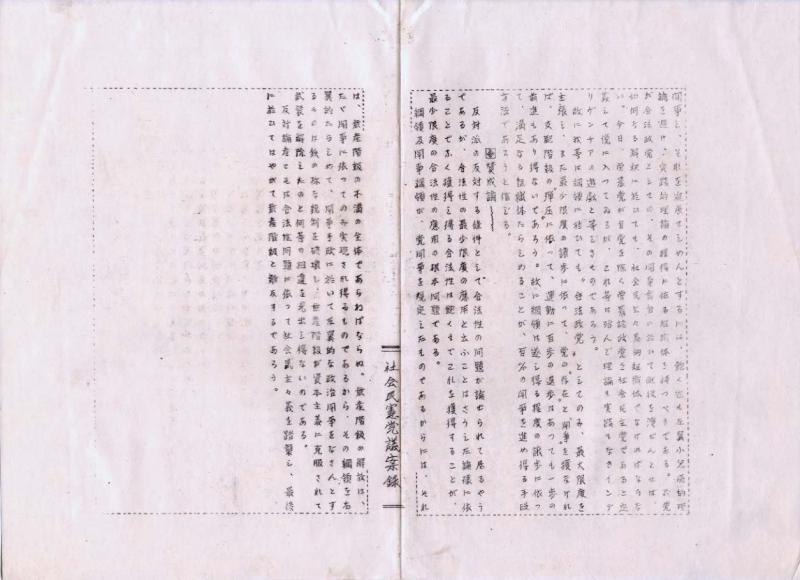 闘争を、それを発展せしめんとするには、飽く迄も左翼小児病的理
論を避け、実践的理論の獲得に依る組織体を持つべきである。
が合法政党としての、その闘争舞台に於いて
如何なる解釈に於ても、社会民主々義的組織体でなければならな
い。今日、労農党が日労を除く労農諸政党を社会民主党であると定
義して僕に入つてゐるが、これ等は殆んど理論も実践もなきインテ
リゲンチアの遊戯と等しきものであらう。
故に我等は綱領に於ても、合法政党としてのみ、最大限度を
主張し、また最少限度の譲歩に依つて、党の存在と闘争を獲なけれ
ば、支配階級の弾圧に依つて、運動に百歩の退歩はあつても一歩の
前進もあり得ないであらう。故に綱領は為し得る程度の譲歩に依つ
て、満足なる組織体たらしめることが、百% の闘争を進め得る手段
方法であらうと信じる。
賛成論
反対派の反対する条件として合法性の問題が論せられて居るやう
であるが、合法性の最少限度の応用と云ふことはさうした論議に依
ることでなく獲得し得る合法性は飽くまでこれを獲得することが、
最少限度の合法性の応用の根本問題である。
綱領及闘争綱領が、党闘争を規定したものであるからには、それ
社会民憲党議案録
は、無産階級の不満の全体であらねばならぬ。無産階級の解放は、
たゞ闘争に依つてのみ実現され得るものであるから、その綱領を右
翼的たらしめて、闘争手段に於いて左翼的な政治闘争をなさんとす
るものは鉄の称な規制を破壊し、無産階級が資本主義に克服されて
武装を解除したのと何等の相違を見出し得ないのである。
反対論者こそは合法性問題に依つて社会民主々義を踏襲し、最後
に於いてはやがて無産階級と離反するであらう。